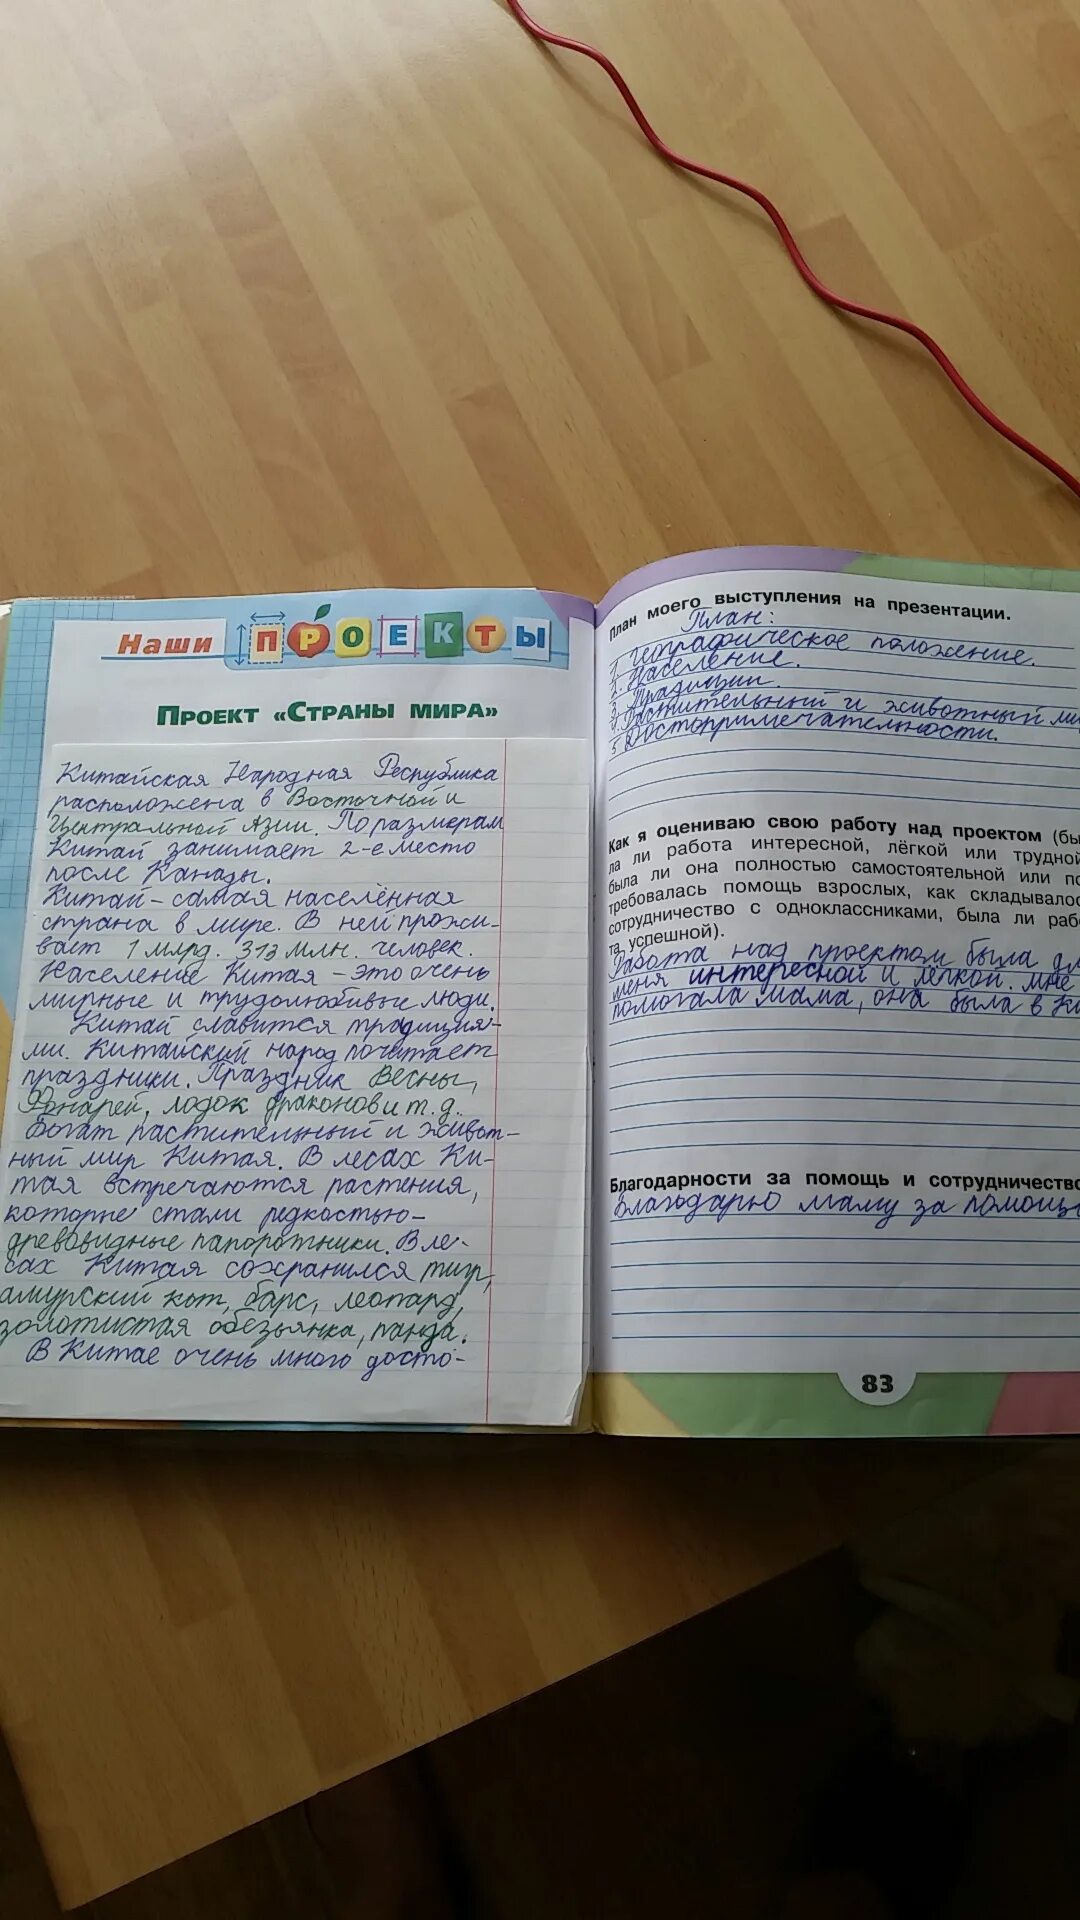 Наши ПРОЕКТЫ
ПРОЕКТ «СТРАНЫ МИРА»
Китайская Народная Республика
расположена в Восточной и
Центральной Азии. По размерам
Китай занимает 2-е место
после Канады.
Китай – самая населённая
страна в мире. В ней прожи-
вает 1 млрд. 313 млн. человек.
Население Китая – это очень
мирные и трудолюбивые люди.
Китай славится традиция-
ми. Китайский народ почитает
праздники. Праздник Весны,
Фонарей, лодок драконов и т.д.
Богат растительный и живот-
ный мир Китая. В лесах Ки-
тая встречаются растения,
которые стали редкостью-
древовидные папоротники. В ле-
сах Китая сохранился тигр,
амурский кот, барс, леопард,
золотистая обезьянка, панда.
В Китае очень много досто-
План моего выступления на презентации.
План:
1. Географическое положение.
2. Население.
3. Традиции.
4. Растительный и животный ми
5. Достопримечательности.
Как я оцениваю свою работу над проектом (бы
ла ли работа интересной, лёгкой или трудной
была ли она полностью самостоятельной или по
требовалась помощь взрослых, как складывалос
сотрудничество с одноклассниками, была ли рабо
та успешной).
Работа над проектом была дл
меня интересной и лёгкой. Мне
помогала мама, она была в Ки
Благодарности за помощь и сотрудничество
Благодарю маму за помощь
83